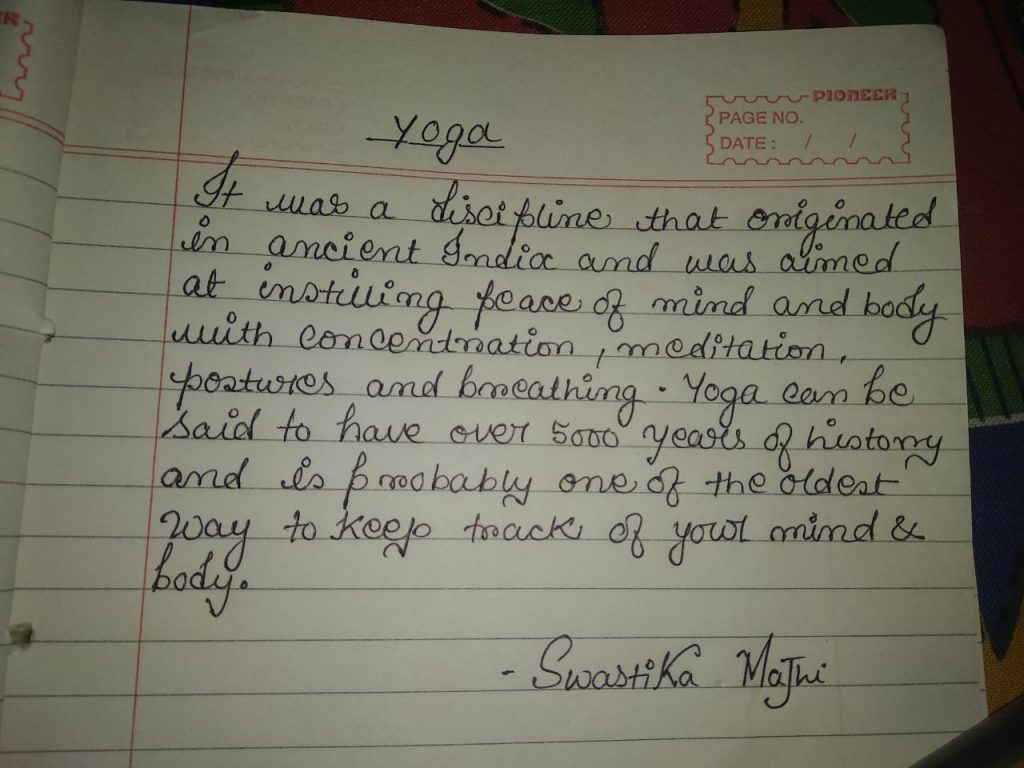 ER
PIONEER
PAGE NO.
DATE : / /
Yoga
It was a discipline that originated
in ancient India and was aimed
at instilling peace of mind and body
with concentration, meditation,
postures and breathing. Yoga can be
said to have over 5000 years of history
and is probably one of the oldest
way to keep track of your mind &
body.
- Swastika Majhi